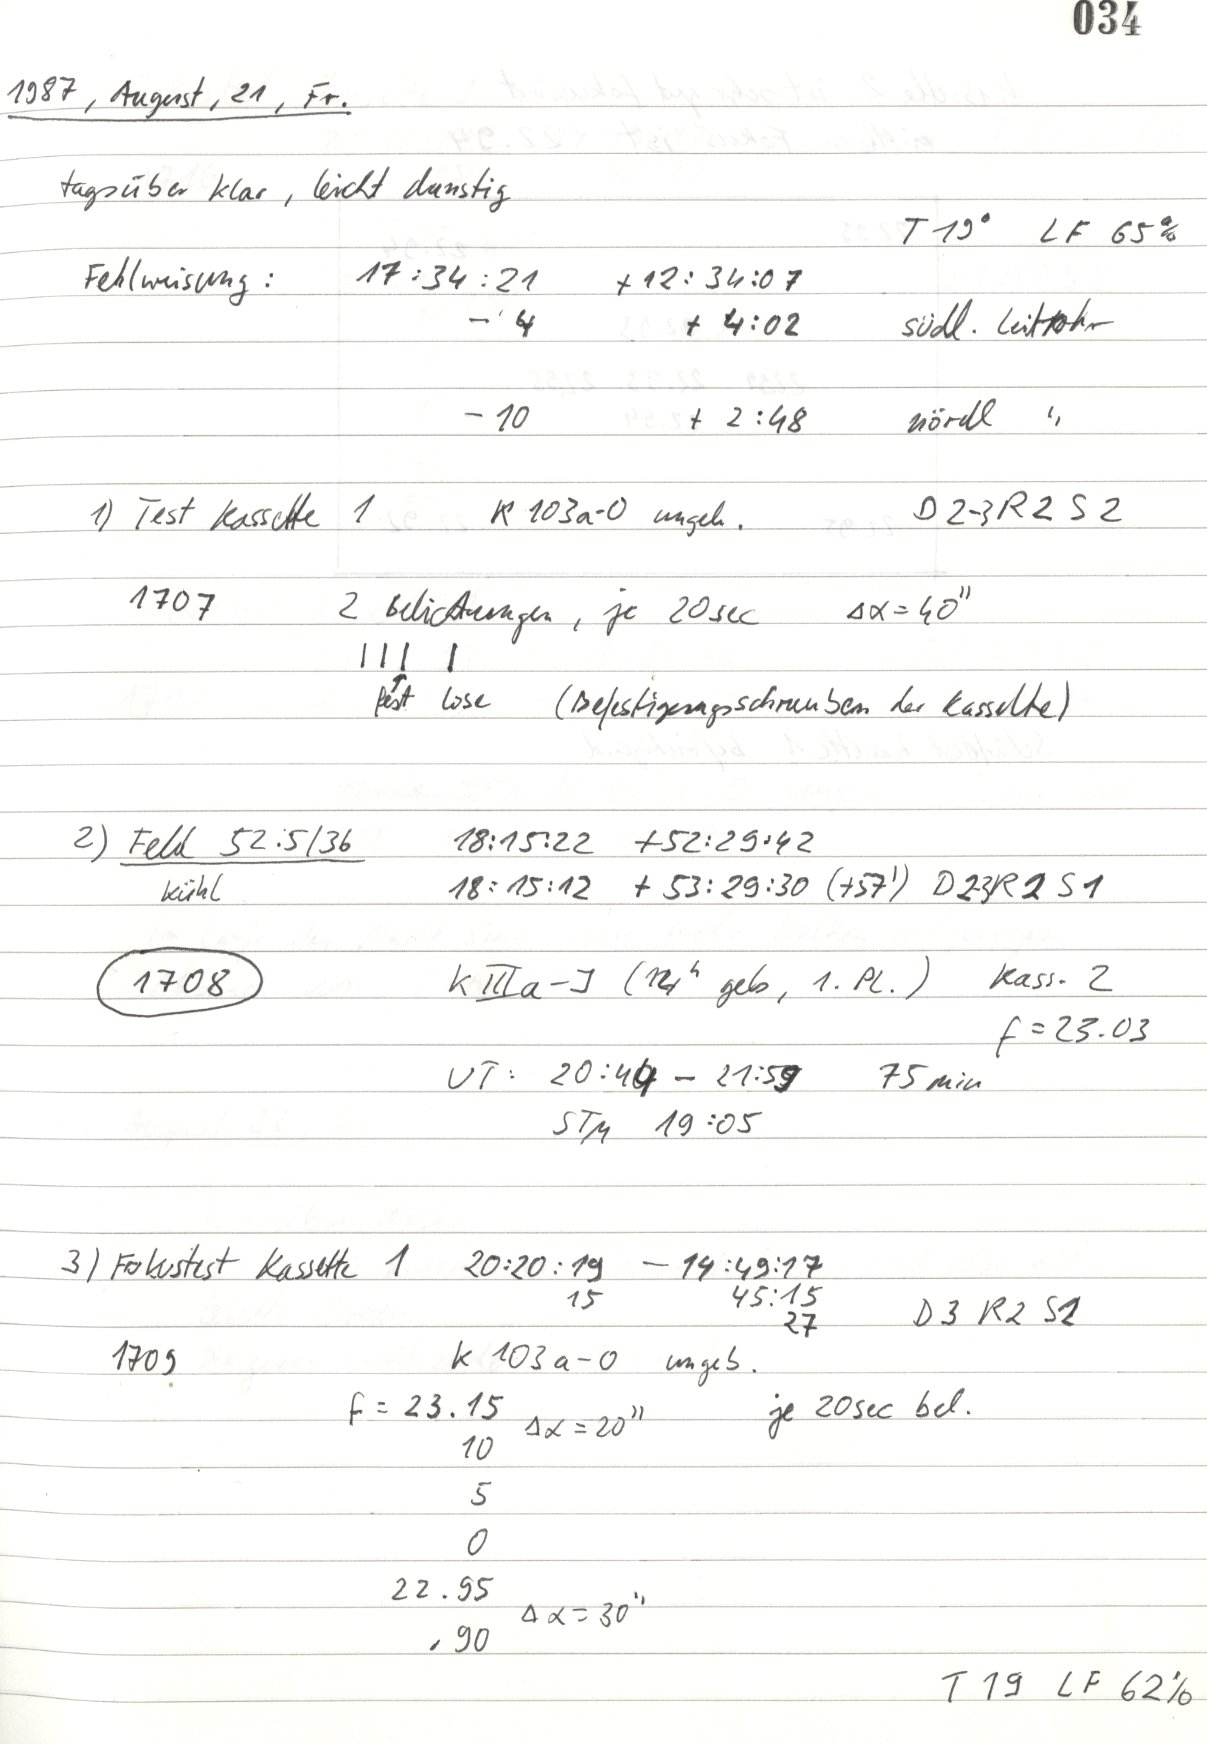 034
1987, August, 21, Fr.
tagsüber klar, leicht dunstig
T 19° LF 65%
Fehlweisung: 17:34:21 +12:34:07
- 4 + 4:02 südl. Leitrohr
- 10 + 2:48 nördl "
1) Test Kassette 1 K 103a-O ungeb. D 2-3 R 2 S 2
1707 2 Belichtungen, je 20sec Δα = 40"
||| |
fest lose (Befestigungsschrauben der Kassette)
2) Feld 52:5/36 18:15:22 +52:29:42
kühl 18:15:12 + 53:29:30 (+57') D 2-3 R 2 S 1
1708 K IIIa-J ( geb, 1. Pl.) Kass. 2
f = 23.03
UT: 20:44 - 21:59 75 min
STM 19:05
3) Fokustest Kassette 1 20:20:19 - 14:49:17
15 45:15
27 D 3 R 2 S 2
1709 K 103a-O ungeb.
f = 23.15 Δα = 20" je 20sec bel.
10
5
0
22.95
Δα = 30"
.90
T 19 LF 62%